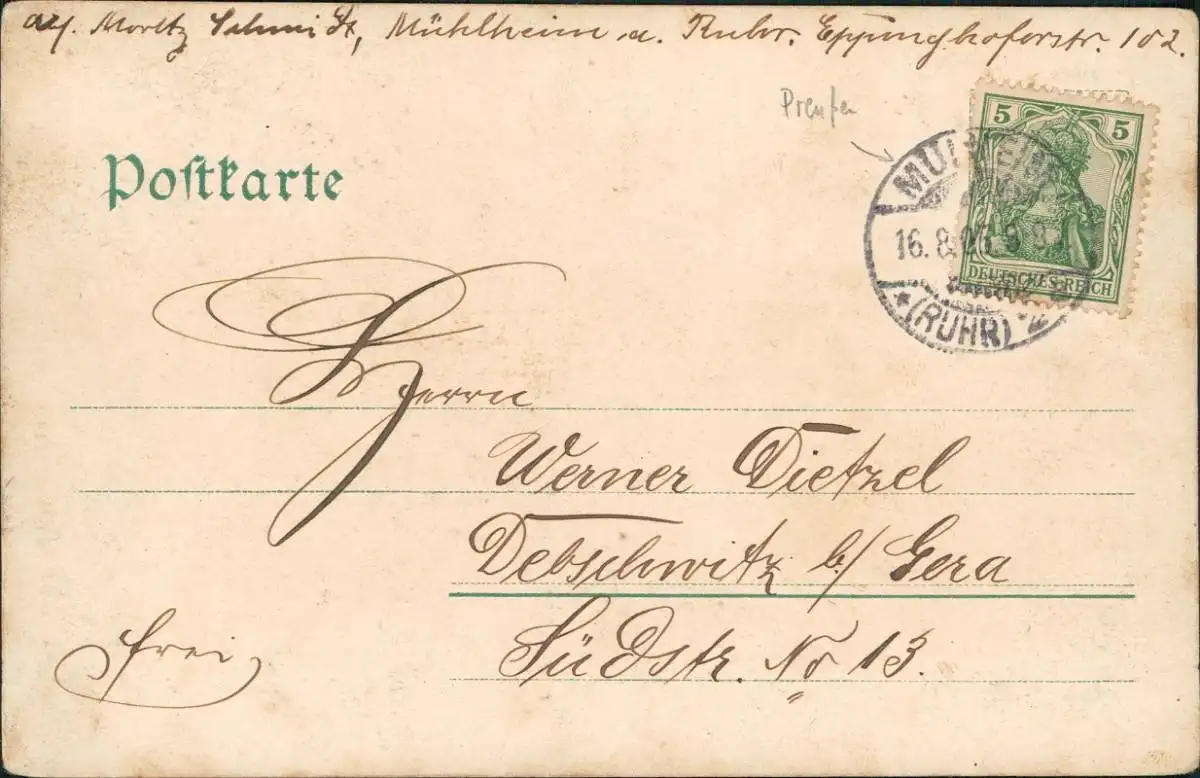 Moritz Schmidt, Mühlheim a. Ruhr. Eppinghoferstr. 102.
Preußen
Postkarte
5 5
DEUTSCHES REICH
MÜLHEIM
16. 8.
(RUHR)
Herrn
Werner Dietzel
Debschwitz b/ Gera
Südstr. No 13.
frei